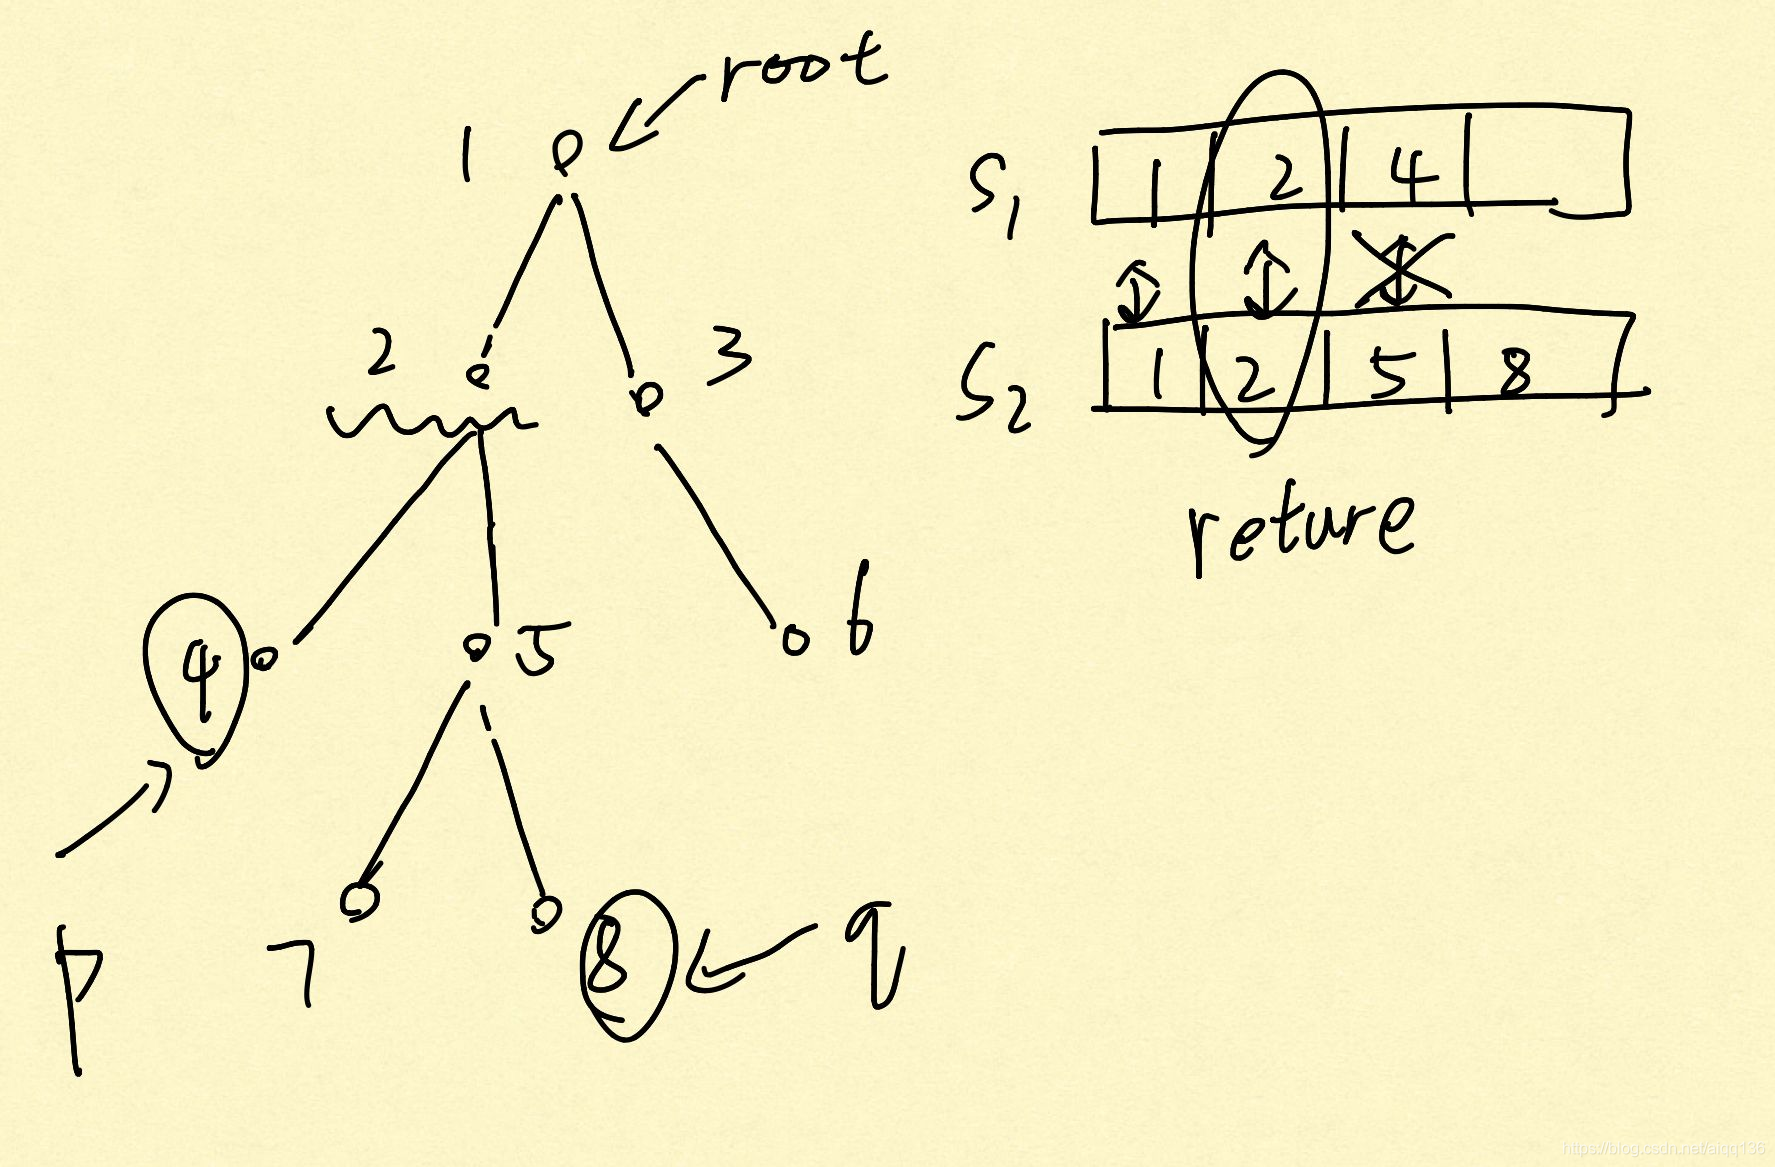 root
1
2
3
4
5
6
7
8
p
q
S1
1 2 4
S2
1 2 5 8
reture
https://blog.csdn.net/aiqq136